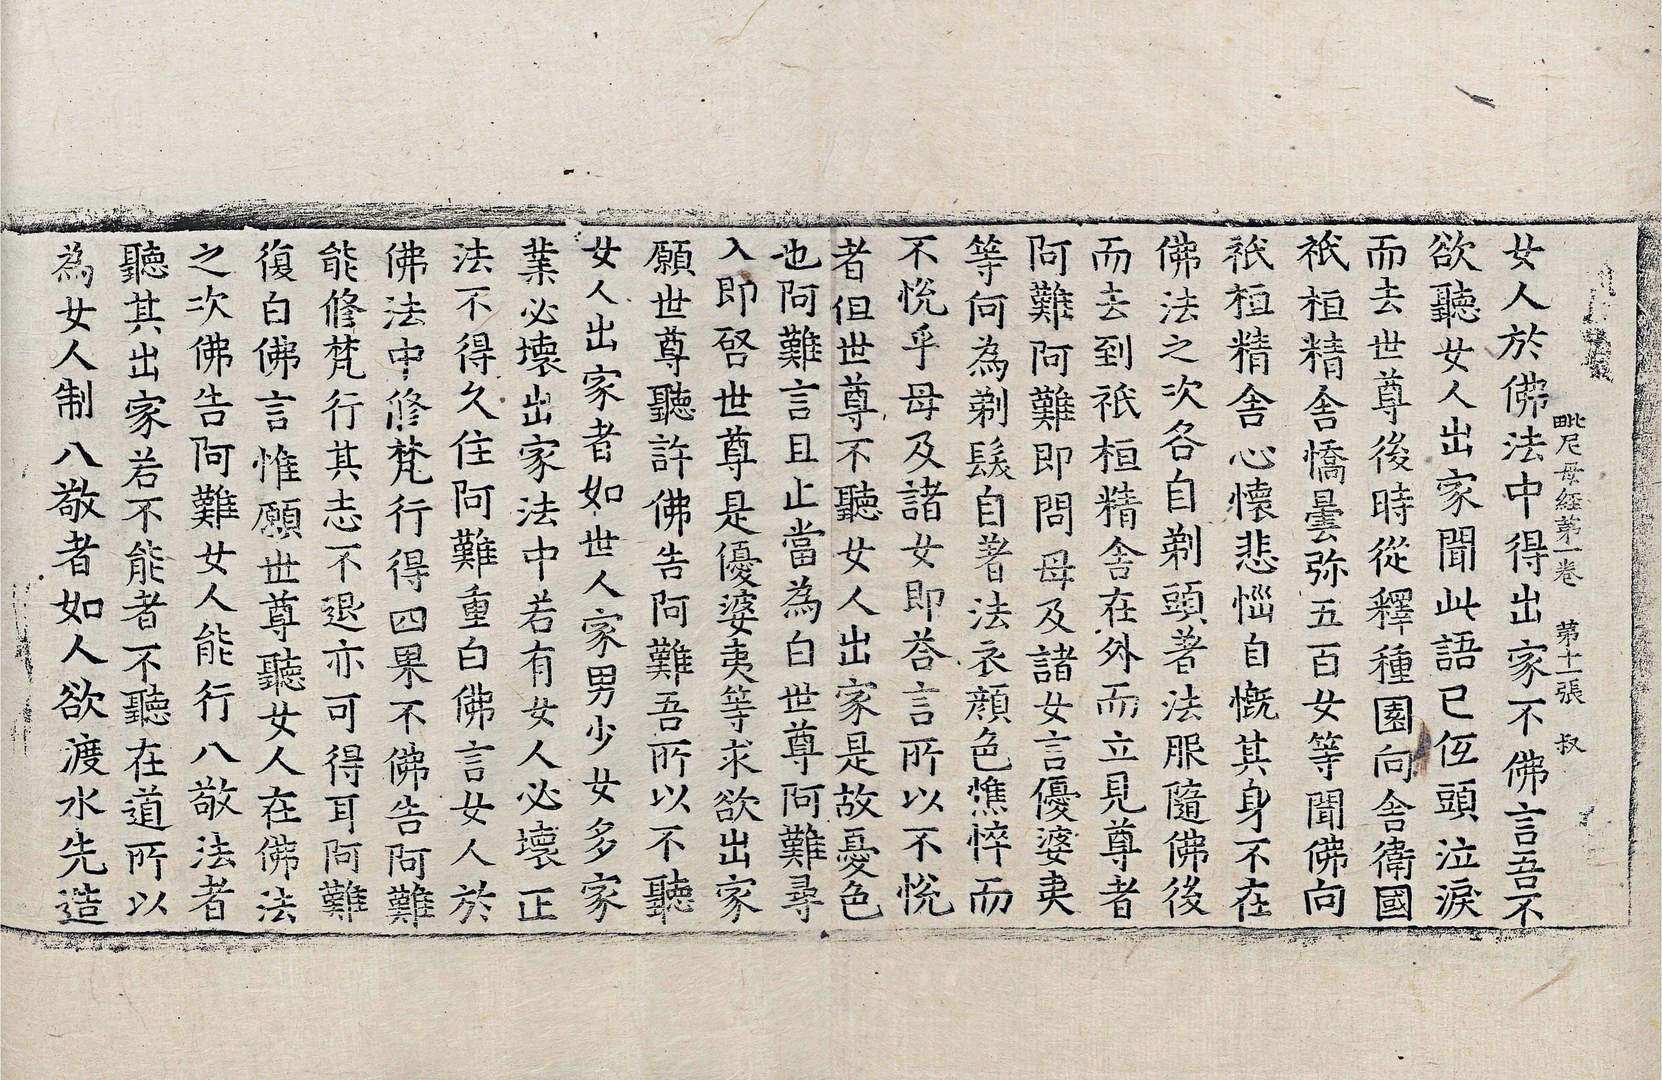 毗尼母經第一卷　第十一張　叔
女人於佛法中得出家不佛言吾不
欲聽女人出家聞此語已低頭泣淚
而去世尊後時從釋種園向舍衛國
祇桓精舍憍曇弥五百女等聞佛向
祇桓精舍心懷悲惱自慨其身不在
佛法之次各自剃頭著法服隨佛後
而去到祇桓精舍在外而立見尊者
阿難阿難即問母及諸女言優婆夷
等何為剃髮自著法衣顔色憔悴而
不悅乎母及諸女即荅言所以不悅
者但世尊不聽女人出家是故憂色
也阿難言且止當為白世尊阿難尋
入即啓世尊是優婆夷等求欲出家
願世尊聽許佛告阿難吾所以不聽
女人出家者如世人家男少女多家
業必壞出家法中若有女人必壞正
法不得久住阿難重白佛言女人於
佛法中修梵行得四果不佛告阿難
能修梵行其志不退亦可得耳阿難
復白佛言惟願世尊聽女人在佛法
之次佛告阿難女人能行八敬法者
聽其出家若不能者不聽在道所以
為女人制八敬者如人欲渡水先造